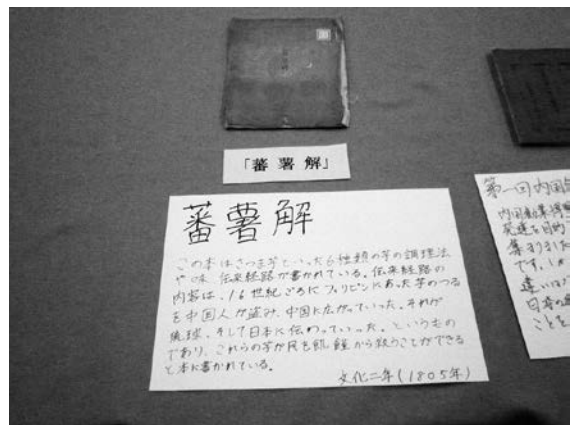 「蕃薯解」
蕃薯解
この本はさつま芋といった6種類の芋の調理法
や味、伝来経路が書かれている。伝来経路の
内容は、16世紀ごろにフィリピンにあった芋のつる
を中国人が盗み、中国に広がっていった。それが
琉球、そして日本に伝わっていった。というもの
であり、これらの芋が民を飢饉から救うことができる
と本に書かれている。
文化二年(1805年)
第一回内国
内国勧業博
発達を目的
集まりました
です。しか
違いは
日本の
ことを